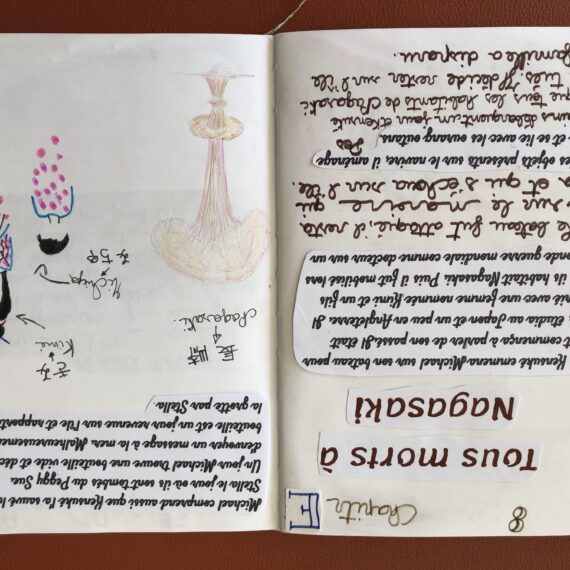 8 Chapitr E
Tous morts à
Nagasaki
Kensuké emmena Michael sur son bateau pour
et commença à parler de son passé. Il était
étudia au Japon et un peu en Angleterre. Il
avec une femme nommée Kimi et un fils
ils habitait Nagasaki. Puis il fut mobilisé lors
guerre mondiale comme docteur sur un
le bateau fut attaqué, il resta
sur le marine qui
et qui s'échoua sur l'île.
es objets présents sur le navire, il aménage
et se lie avec les ourang outans. Des
débarquent un jour et Kensuké
que tous les habitants de Nagasaki
tués. Il décide rester sur l'île
famille a disparu.
Michael comprend aussi que Kensuké l'a sauvé
Stella le jour où ils sont tombés du Peggy Sue.
Un jour Michael trouve une bouteille vide et déc
d'envoyer un message à la mer. Malheureusemen
bouteille est un jour revenue sur l'île et rapporté
la grotte par Stella.
長崎
Nagasaki.
きみ
Kimi